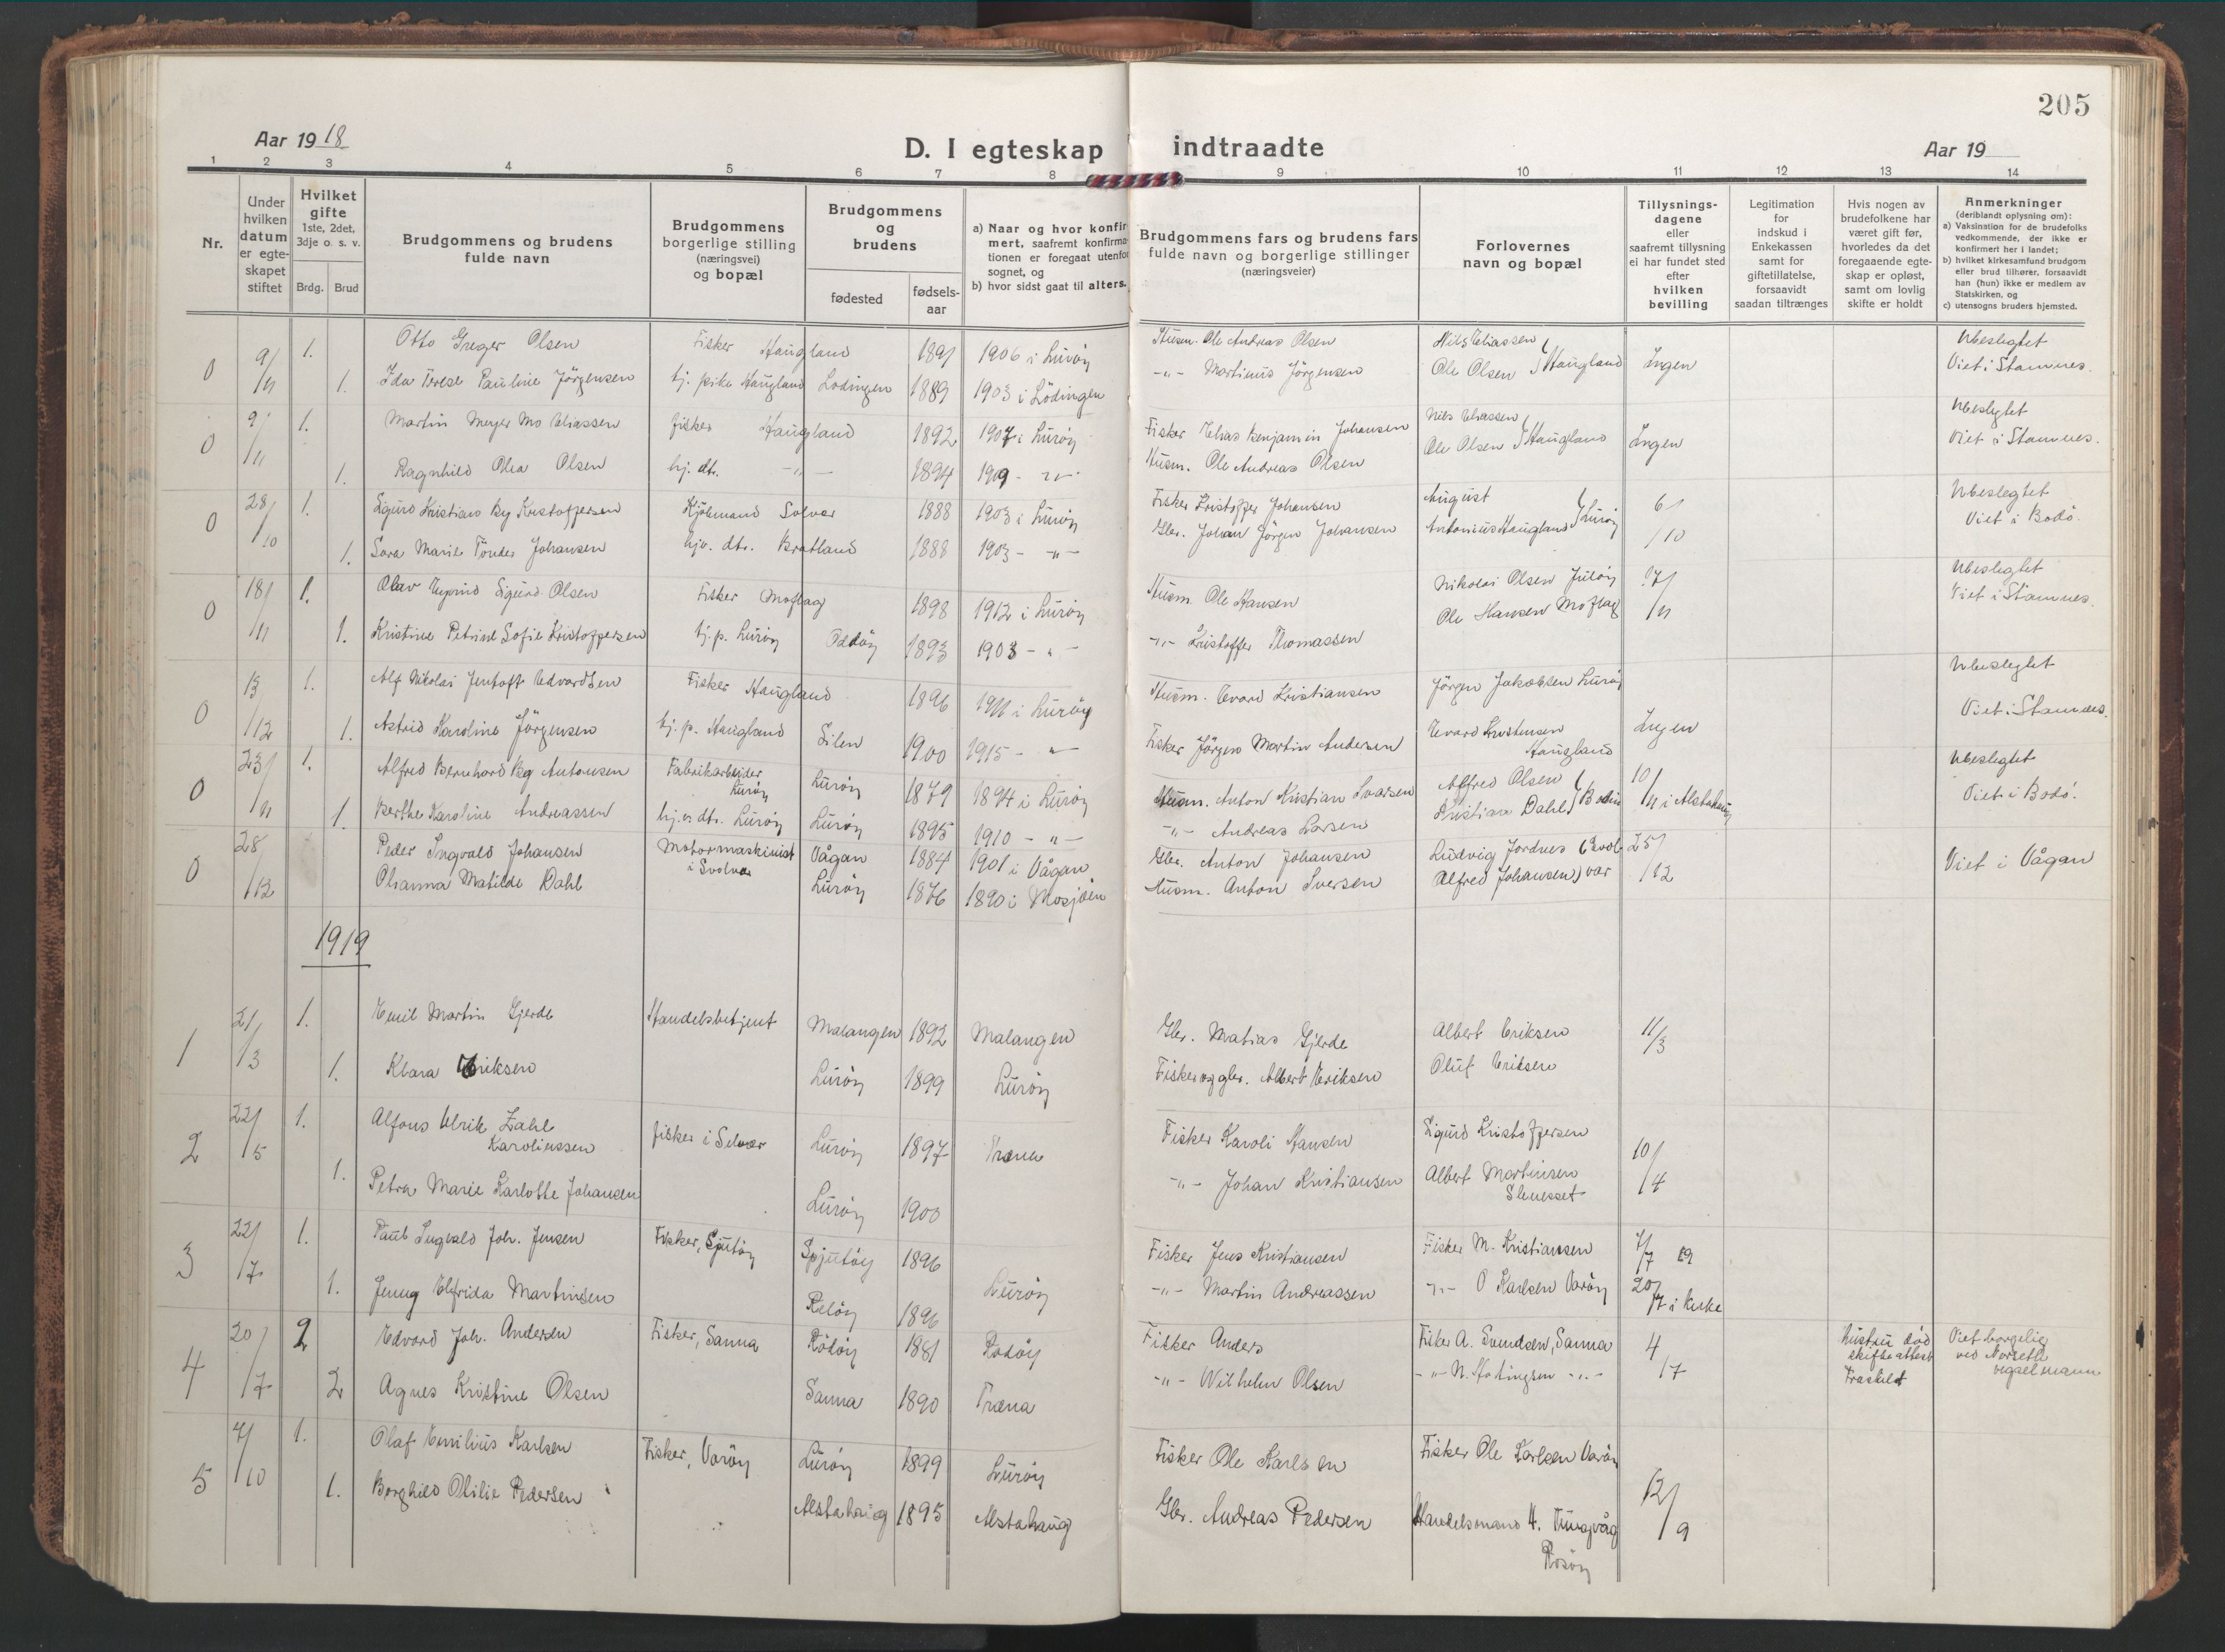 205
Aar 1918
D. I egteskap indtraadte
Aar 19
1 2 3 4 5 6 7 8 9 10 11 12 13 14
Nr.
Under hvilken datum er egteskapet stiftet
Hvilket gifte 1ste, 2det, 3dje o. s. v.
Brdg. Brud
Brudgommens og brudens fulde navn
Brudgommens borgerlige stilling (næringsvei) og bopæl
Brudgommens og brudens
fødested
fødselsaar
a) Naar og hvor konfirmert, saafremt konfirmationen er foregaat utenfor sognet, og
b) hvor sidst gaat til alters.
Brudgommens fars og brudens fars fulde navn og borgerlige stillinger (næringsveier)
Forlovernes navn og bopæl
Tillysningsdagene eller saafremt tillysning ei har fundet sted efter hvilken bevilling
Legitimation for indskud i Enkekassen samt for giftetillatelse, forsaavidt saadan tiltrænges
Hvis nogen av brudefolkene har været gift før, hvorledes da det foregaaende egteskap er opløst, samt om lovlig skifte er holdt
Anmerkninger (deriblandt oplysning om):
a) Vaksination for de brudefolks vedkommende, der ikke er konfirmert her i landet;
b) hvilket kirkesamfund brudgom eller brud tilhører, forsaavidt han (hun) ikke er medlem av Statskirken, og
c) utensogns bruders hjemsted.
0 9/11 1. Otto Greger Olsen Fisker Haugland 1891 1906 i Lurøy Husm. Ole Andreas Olsen Nils Eliassen Ubeslegtet
1. Ida Terese Pauline Jörgensen tj. pike Haugland Lödingen 1889 1903 i Lödingen -"- Martinus Jörgensen Ole Olsen } Haugland Ingen Viet i Stamnes.
0 9/11 1. Martin Meyer Mo Eliassen fisker Haugland 1892 1907 i Lurøy Fisker Elias Benjamin Johansen Nils Eliassen Ubeslegtet
1. Ragnhild Olea Olsen hj. dt. -"- 1894 1909 - "- Husm. Ole Andreas Olsen Ole Olsen } Haugland Ingen Viet i Stamnes.
0 28/10 1. Sigurd Kristian By Kristoffersen Kjöbmand Solvær 1888 1903 i Lurøy Fisker Kristoffer Johansen August 6/10 Ubeslegtet
1. Sara Marie Tönder Johansen hjv. dtr. Bratland 1888 1903 - "- Gbr. Johan Jörgen Johansen Antonius Haugland } Lurøy Viet i Bodö.
0 18/11 1. Olav Eyvind Sigurd Olsen Fisker Moflag 1898 1912 i Lurøy Husm. Ole Hansen Nikolai Olsen 17/11 Ubeslegtet
1. Kristine Petrine Sofie Kristoffersen tj. p. Lurøy 1893 1908 - "- -"- Kristoffer Thomassen Ole Hansen Moflag Viet i Stamnes.
0 13/12 1. Alf Nikolai Jentoft Edvardsen Fisker Haugland 1896 1911 i Lurøy Husm. Evard Kristiansen Jörgen Jakobsen Lurøy Ubeslegtet
1. Astrid Karoline Jörgensen tj. p. Haugland Silen 1900 1915 - "- Fisker Jörgen Martin Andersen Evard Kristensen Haugland Ingen Viet i Stamnes.
0 23/11 1. Alfred Bernhard By Antonsen Fabrikarbeider Lurøy Lurøy 1879 1894 i Lurøy Husm. Anton Kristian Ivarsen Alfred Olsen 10/11 i Alstahaug Ubeslegtet
1. Berthe Karoline Andreassen hj.v. dtr. Lurøy Lurøy 1895 1910 - "- -"- Andreas Larsen Kristian Dahl } Bodin Viet i Bodö.
0 28/12 Peder Ingvald Johansen Motormaskinist i Svolvær Vågan 1884 1901 i Vågan Gbr. Anton Johansen Ludvig Jordnes 25/12 Viet i Vågan
Olianna Matilde Dahl Lurøy 1876 1890 i Mosjøen Husm. Anton Iversen Alfred Johansen } Svolvær
1919
1 21/3 1. Emil Martin Gjerde Handelsbetjent Malangen 1892 Malangen Gbr. Matias Gjerde Albert Eriksen 11/3
1. Klara Eriksen Lurøy 1899 Lurøy Fisker og gbr. Albert Eriksen Oluf Eriksen
2 22/5 1. Alfons Ulrik Zahl Karoliussen fisker i Selvær Lurøy 1897 Træna Fisker Karoli Hansen Sigurd Kristoffersen 10/4
1. Petra Marie Karlotte Johansen Lurøy 1900 -"- Johan Kristiansen Albert Martinsen
3 22/7 1. Paul Ingvald Joh. Jensen Fisker, Sjutøy Spjutøy 1896 Fisker Jens Kristiansen Fisker M. Kristiansen 7/7 19
1. Jenny Elfrida Martinsen Reløy 1896 Lurøy -"- Martin Andreassen -"- O Karlsen Varøy 20/7 i kirke
4 20/7 2 Edvard Joh. Andersen Fisker, Sanna Rödöy 1881 Rödöy Fisker Anders Fisker A. Svendsen, Sanna 4/7 Hustru död skifteattest Viet borgelig ved Norseth
2 Agnes Kristine Olsen Sanna 1890 Træna -"- Wilhelm Olsen -"- N. Hotingsen -"- Fraskilt
5 4/10 1. Olaf Emilius Karlsen Fisker, Varøy Lurøy 1899 Lurøy Fisker Ole Karlsen Fisker Ole Karlsen Varøy 12/9
1. Borghild Otilie Pedersen Alstahaug 1895 Alstahaug Gbr. Andreas Pedersen Handelsmand H. Tungvåg